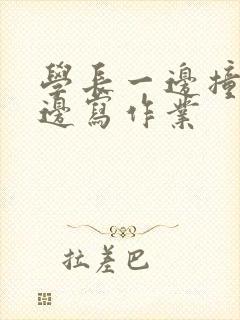 學長一邊撞
邊寫作業
拉差巴